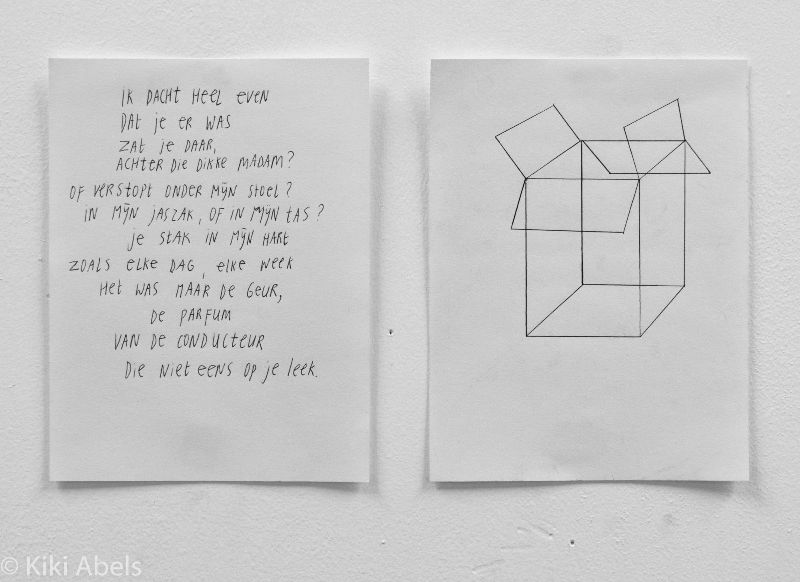 IK DACHT HEEL EVEN
DAT je ER WAS
ZAT je DAAR,
ACHTER DIE DIKKE MADAM?
OF VERSTOPT ONDER MIJN STOEL?
IN MIJN JASZAK, OF IN MIJN TAS?
je STAK IN MIJN HART
ZOALS ELKE DAG, ELKE WEEK
HET WAS MAAR DE GEUR,
DE PARFUM
VAN DE CONDUCTEUR
DIE NIET EENS OP je LEEK.
© Kiki Abels